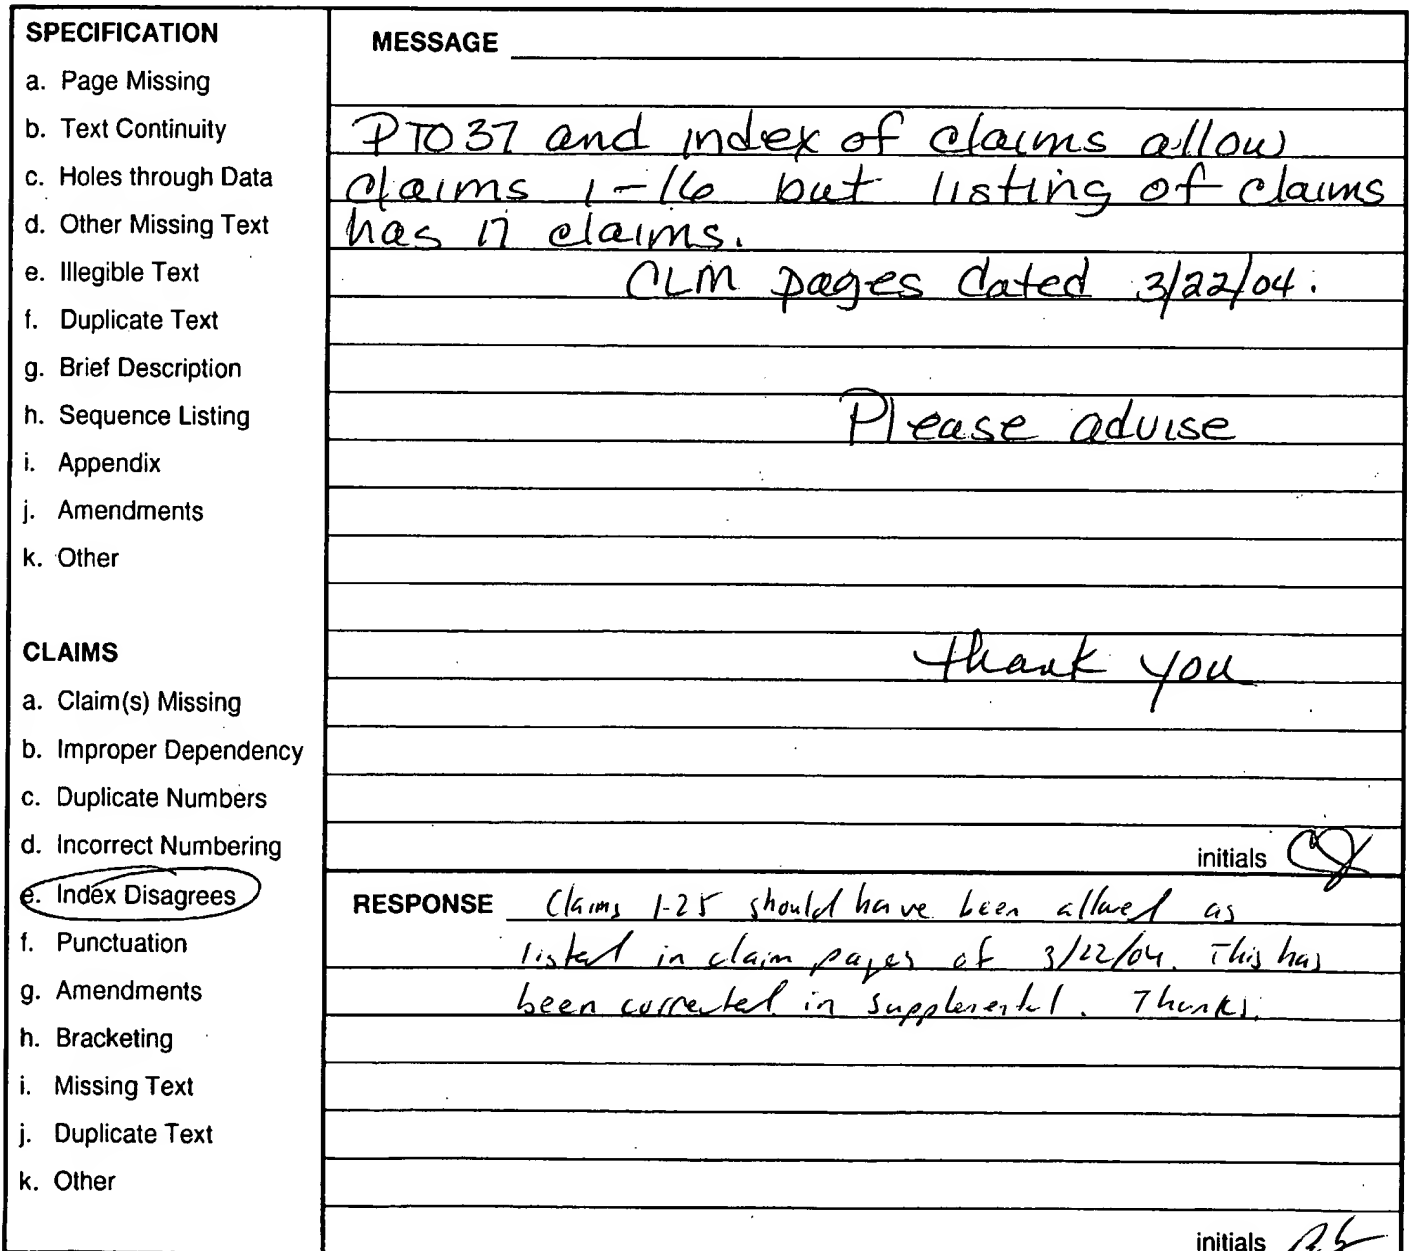 SPECIFICATION
a. Page Missing
b. Text Continuity
c. Holes through Data
d. Other Missing Text
e. Illegible Text
f. Duplicate Text
g. Brief Description
h. Sequence Listing
i. Appendix
j. Amendments
k. Other
CLAIMS
a. Claim(s) Missing
b. Improper Dependency
c. Duplicate Numbers
d. Incorrect Numbering
e. Index Disagrees
f. Punctuation
g. Amendments
h. Bracketing
i. Missing Text
j. Duplicate Text
k. Other
MESSAGE
PTO37 and index of claims allow
claims 1-16 but listing of claims
has 17 claims.
CLM pages dated 3/22/04.
Please advise
thank you
initials
RESPONSE Claims 1-25 should have been allowed as
listed in claim pages of 3/22/04. This has
been corrected in supplemental. Thanks.
initials